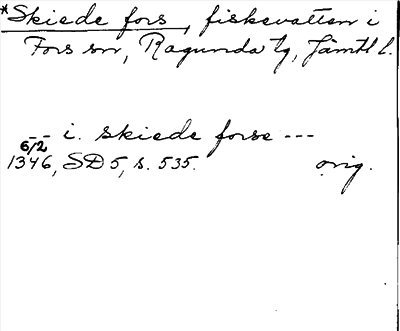 *Skiede fors, fiskevatten i
Fors sn, Ragunda tg, Jämtl l.
-- i. skiede forse ---
6/2
1346, SD 5, s. 535. orig.